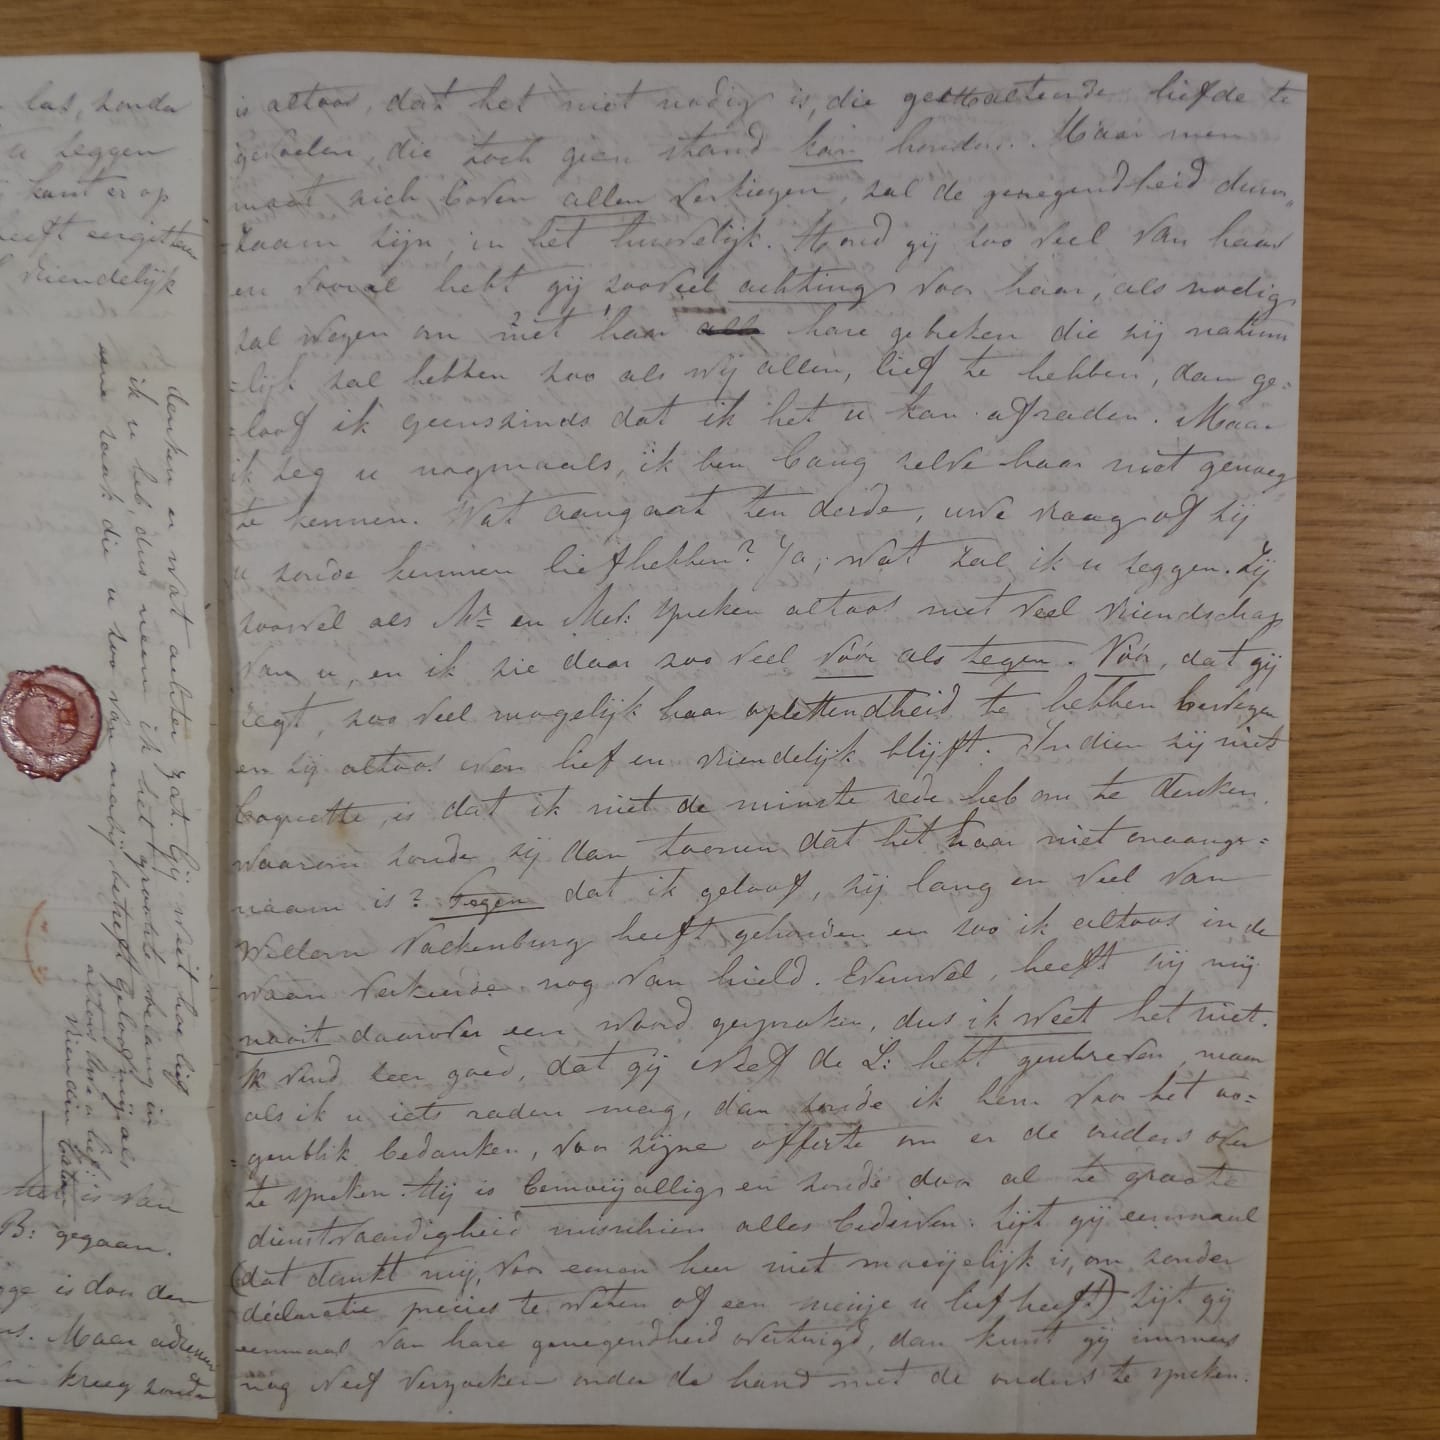 las, zonder
u zeggen
kant er op
heeft
vriendelijk
denken er wat achter zat. Gij weet hoe lief
ik u heb, dus neem ik het grootste belang in
eene zaak die u zoo van nabij betreft geloof mij als
altoos uwe u lief:
Vriendin
het is van
B: gegaan.
is door den
Maar
kreeg zonder
is altoos, dat het niet nodig is, die liefde te
gevoelen, die toch geen stand kan houden. Maar men
moet zich boven allen verliezen, zal de genegendheid duur„
zaam zijn, in het huwelijk. Houd gij zoo veel van haar
en vooral hebt gij zooveel achting voor haar, als nodig
zal wezen om met haar hare gebreken die zij natuur
=lijk zal hebben zoo als wij allen, lief te hebben, dan ge=
=loof ik geenszinds dat ik het u kan afraden. Maar
ik zeg u nogmaals, ik ben bang zelve haar niet genoeg
te kennen. Wat aangaat ten derde, uwe vraag of zij
u zoude kunnen liefhebben? Ja, wat zal ik u zeggen. Zij
zoowel als Mr en Mev: spreken altoos met veel vriendschap
van u, en ik zie daar zoo veel vóór als tegen. Vóór, dat gij
zegt, zoo veel mogelijk haar oplettendheid te hebben bewezen
en zij altoos even lief en vriendelijk blijft. Indien zij niet
Coquette is dat ik niet de minste rede heb om te denken,
waarom zoude zij dan toonen dat het haar niet onaange=
naam is? Tegen dat ik geloof, zij lang en veel van
Willem Valkenburg heeft gehouden en zoo ik altoos in de
waan verkeerde nog van hield. Evenwel, heeft zij mij
nooit daarover een woord gesproken, dus ik weet het niet.
Ik vind zeer goed, dat gij Neef de L: hebt geschreven, maar
als ik u iets raden mag, dan zoude ik hem voor het oo=
=genblik bedanken, voor zijne offerte om er de ouders over
te spreken. Hij is bemoeijallig en zoude door al te groote
dienstvaardigheid misschien alles bederven: zijt gij eenmaal
(dat dunkt mij, voor eenen heer niet moeijelijk is, om zonder
déclaratie precies te weten of een meisje u lief heeft) zijt gij
eenmaal van hare genegendheid overtuigd, dan kunt gij immers
nog Neef verzoeken onder de hand met de ouders te spreken.